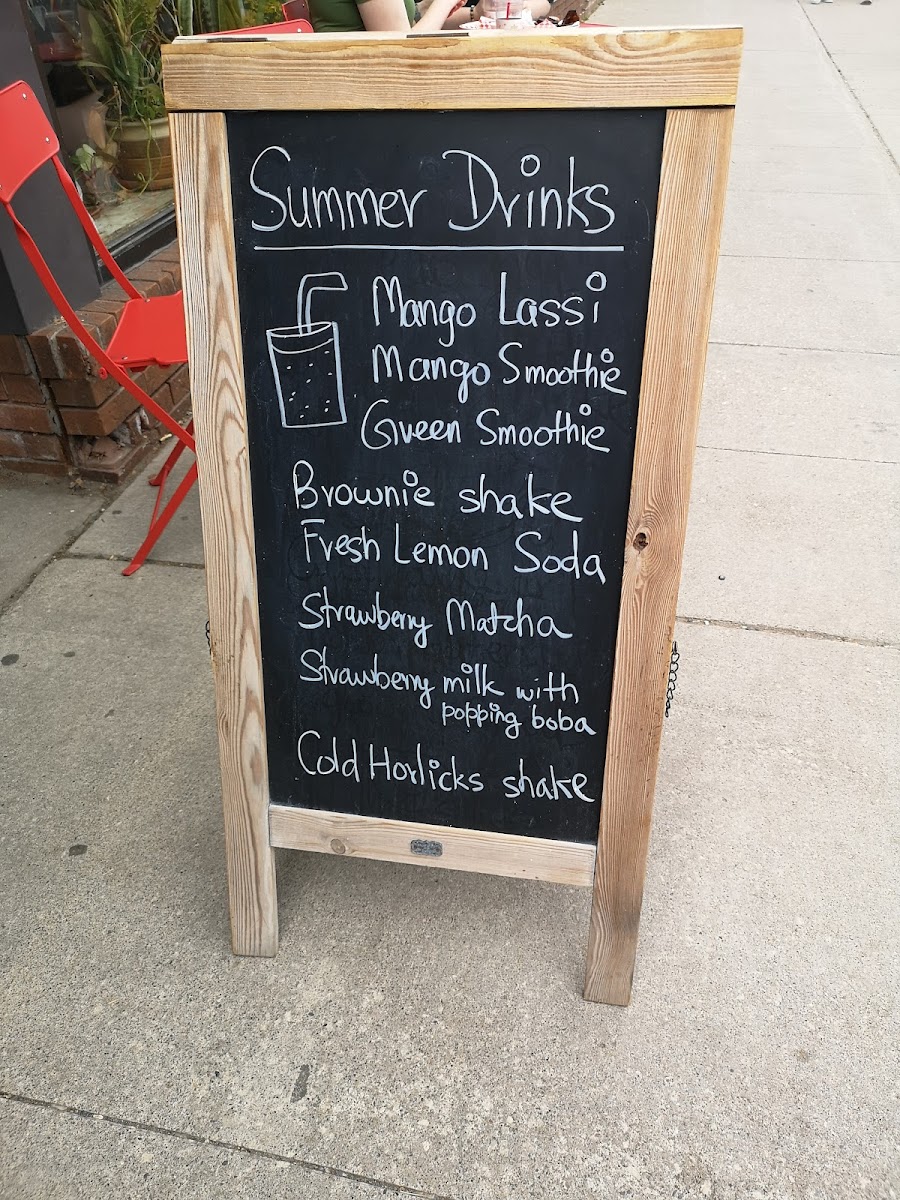 Summer Drinks
Mango Lassi
Mango Smoothie
Green Smoothie
Brownie shake
Fresh Lemon Soda
Strawberry Matcha
Strawberry milk with
popping boba
Cold Horlicks shake